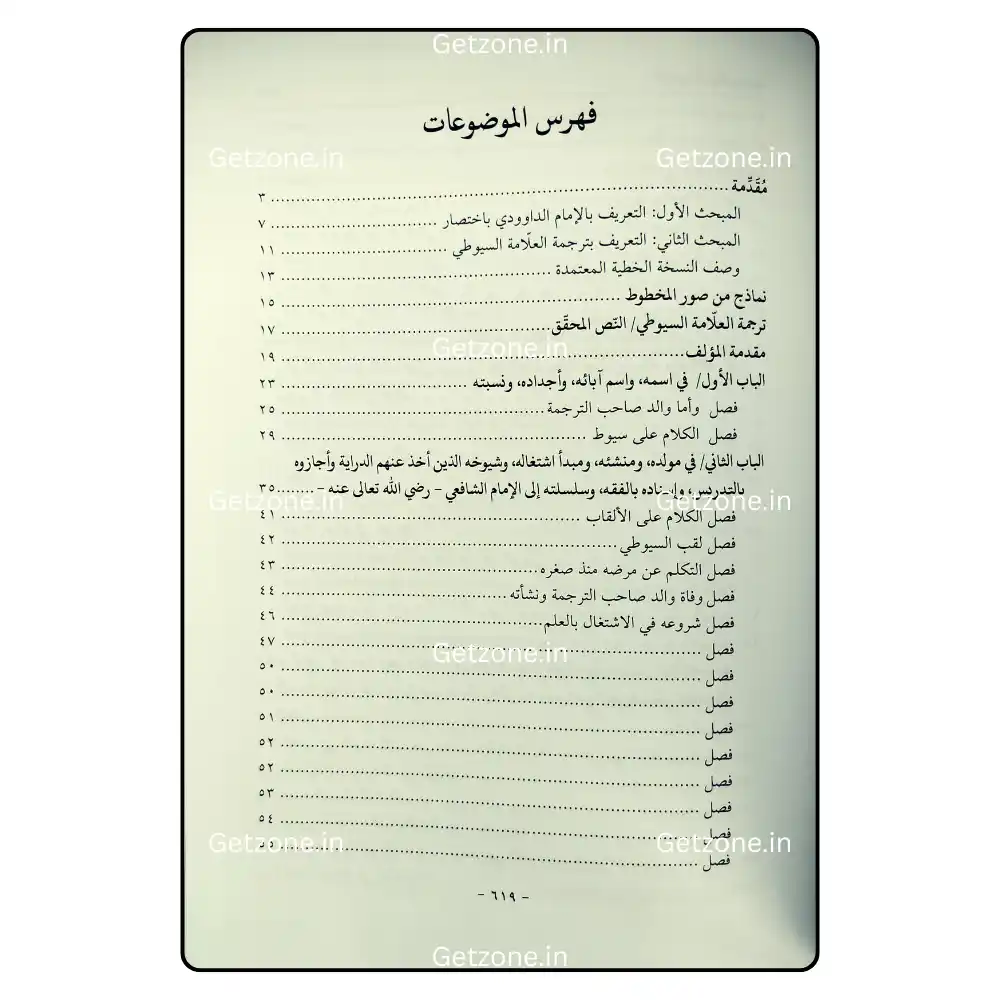 Getzone.in
فهرس الموضوعات
Getzone.in Getzone.in
مُقَدِّمة ........ ٣
المبحث الأول: التعريف بالإمام الداوودي باختصار ........ ٧
المبحث الثاني: التعريف بترجمة العلّامة السيوطي ........ ١١
وصف النسخة الخطية المعتمدة ........ ١٣
نماذج من صور المخطوط ........ ١٥
ترجمة العلّامة السيوطي/ النّص المحقّق ........ ١٧
Getzone.in
مقدمة المؤلف ........ ١٩
الباب الأول/ في اسمه، واسم آبائه، وأجداده، ونسبته ........ ٢٣
فصل وأما والد صاحب الترجمة ........ ٢٥
فصل الكلام على سيوط ........ ٢٩
الباب الثاني/ في مولده، ومنشئه، ومبدأ اشتغاله، وشيوخه الذين أخذ عنهم الدراية وأجازوه
بالتدريس، وإسناده بالفقه، وسلسلته إلى الإمام الشافعي – رضي الله تعالى عنه – ........ ٣٥
Getzone.in Getzone.in
فصل الكلام على الألقاب ........ ٤١
فصل لقب السيوطي ........ ٤٢
فصل التكلم عن مرضه منذ صغره ........ ٤٣
فصل وفاة والد صاحب الترجمة ونشأته ........ ٤٤
فصل شروعه في الاشتغال بالعلم ........ ٤٦
فصل ........ ٤٧
Getzone.in
فصل ........ ٥٠
فصل ........ ٥٠
فصل ........ ٥١
فصل ........ ٥٢
فصل ........ ٥٢
فصل ........ ٥٣
فصل ........ ٥٤
Getzone.in Getzone.in
فصل ........
– ٦١٩ –
Getzone.in